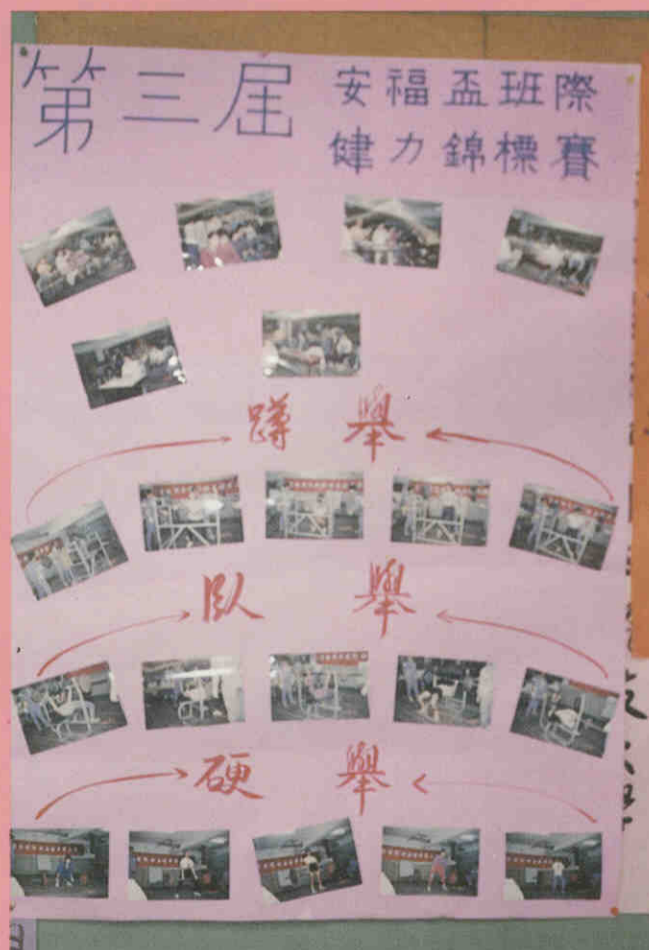 第三屆 安福盃班際
健力錦標賽
蹲舉
臥舉
硬舉